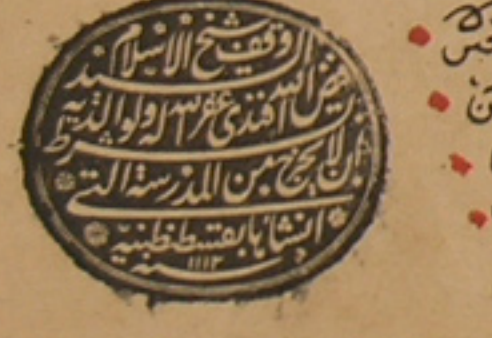 وقف شيخ الاسلام
السيد
فيض الله افندى غفر الله له ولوالديه
بشرط
ان لا يخرج من المدرسة التى
انشاها بقسطنطينية
سنه ١١١٢